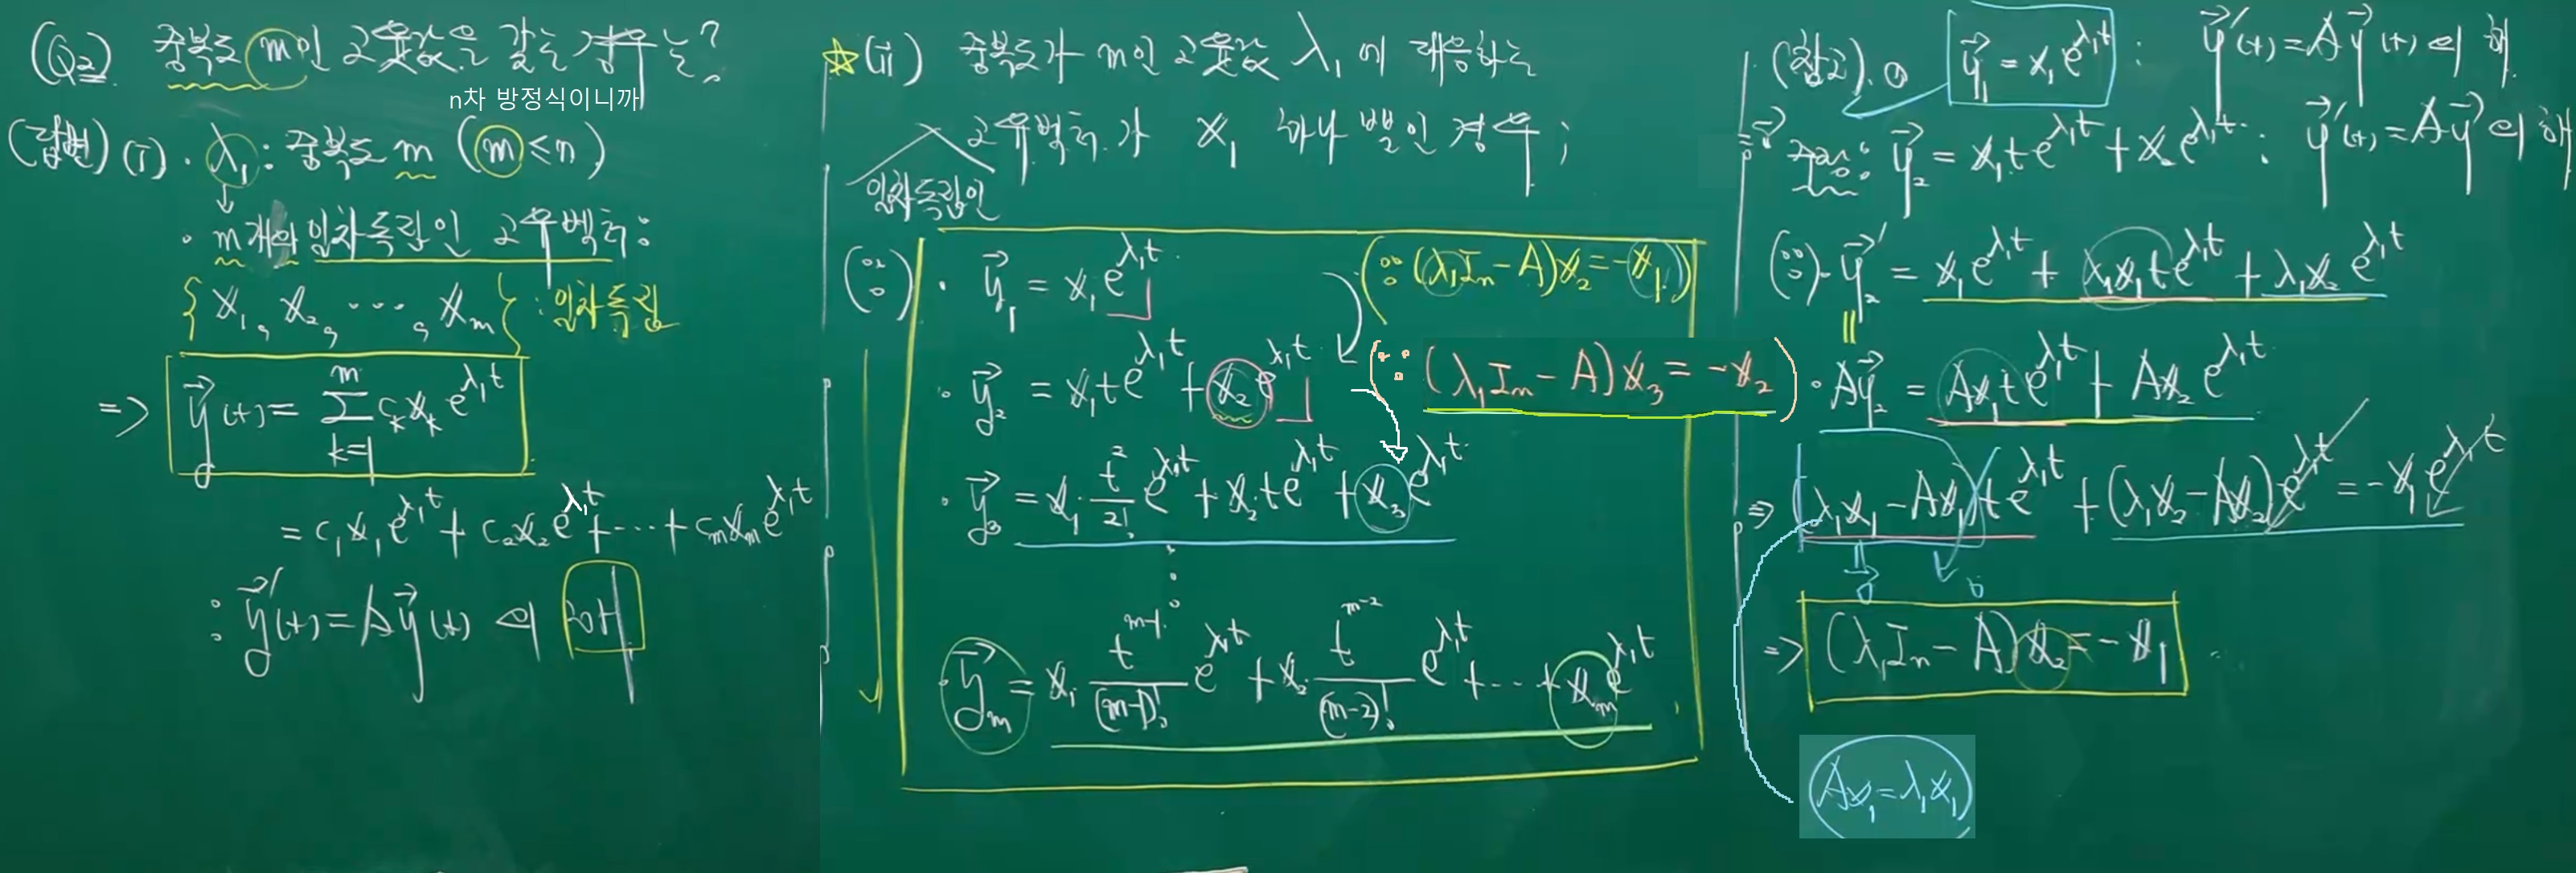 (Q2) 중복도 m인 고유값을 갖는 경우는?
n차 방정식이니까
(답변) (i) · λ₁ : 중복도 m (m ≤ n)
↓
· m개의 일차독립인 고유벡터 :
{ x₁, x₂, ⋯, xₘ } : 일차독립
⇒ y⃗(t) = Σₖ₌₁ᵐ cₖxₖ e^{λ₁t}
= c₁x₁e^{λ₁t} + c₂x₂e^{λ₁t} + ⋯ + cₘxₘe^{λ₁t}
: y⃗'(t) = Ay⃗(t) 의 해
☆(ii) 중복도가 m인 고유값 λ₁에 대응하는
고유벡터가 x₁ 하나 뿐인 경우 ;
일차독립인
(∵) · y⃗₁ = x₁e^{λ₁t} (∵ (λ₁Iₙ - A)x₂ = -x₁)
· y⃗₂ = x₁te^{λ₁t} + x₂e^{λ₁t} (∵ (λ₁Iₘ - A)x₃ = -x₂)
· y⃗₃ = x₁ · t²/2! e^{λ₁t} + x₂te^{λ₁t} + x₃e^{λ₁t}
⋮
· y⃗ₘ = x₁ · t^{m-1}/(m-1)! e^{λ₁t} + x₂ · t^{m-2}/(m-2)! e^{λ₁t} + ⋯ + xₘe^{λ₁t}
(참고). ① y⃗₁ = x₁e^{λ₁t} : y⃗'(t) = Ay⃗(t) 의 해.
y⃗₂ = x₁te^{λ₁t} + x₂e^{λ₁t} : y⃗'(t) = Ay⃗ 의 해
(∵) · y⃗₂' = x₁e^{λ₁t} + λ₁x₁te^{λ₁t} + λ₁x₂e^{λ₁t}
||
· Ay⃗₂ = Ax₁te^{λ₁t} + Ax₂e^{λ₁t}
⇒ (λ₁x₁ - Ax₁)te^{λ₁t} + (λ₁x₂ - Ax₂)e^{λ₁t} = -x₁e^{λ₁t}
|| 0⃗ 0
⇒ (λ₁Iₙ - A)x₂ = -x₁
Ax₁ = λ₁x₁